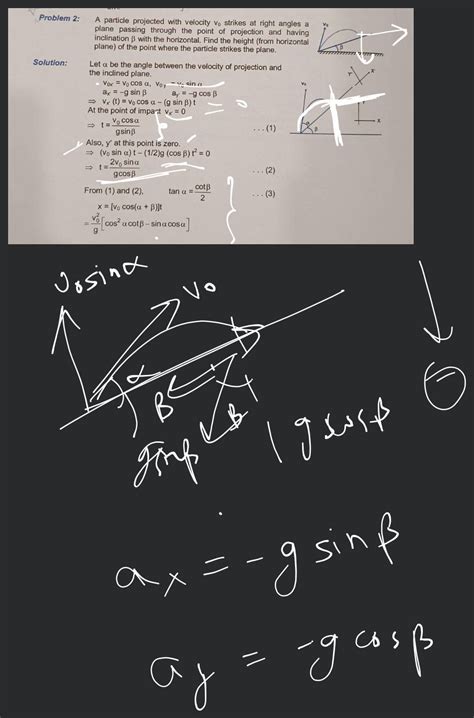 Problem 2: A particle projected with velocity v₀ strikes at right angles a
plane passing through the point of projection and having
inclination β with the horizontal. Find the height (from horizontal
plane) of the point where the particle strikes the plane.
Solution: Let α be the angle between the velocity of projection and
the inclined plane.
v₀ₓ = v₀ cos α, v₀ᵧ = v₀ sin α
aₓ = −g sin β aᵧ = −g cos β
⇒ vₓ' (t) = v₀ cos α − (g sin β) t = 0
At the point of impact vₓ' = 0
⇒ t = v₀ cosα / gsinβ ...(1)
Also, y' at this point is zero.
⇒ (v₀ sin α) t − (1/2)g (cos β) t² = 0
⇒ t = 2v₀ sinα / gcosβ ...(2)
From (1) and (2), tan α = cotβ / 2 ...(3)
x = [v₀ cos(α + β)]t
= v₀²/g [cos² α cotβ − sinα cosα]
v₀ sinα
v₀
α
β
β
g sinβ
g cosβ
aₓ = −g sinβ
aᵧ = −g cosβ